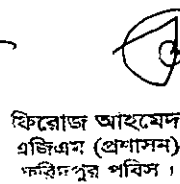 ফিরোজ আহমেদ
এজিএম (প্রশাসন)
ফরিদপুর পবিস ।